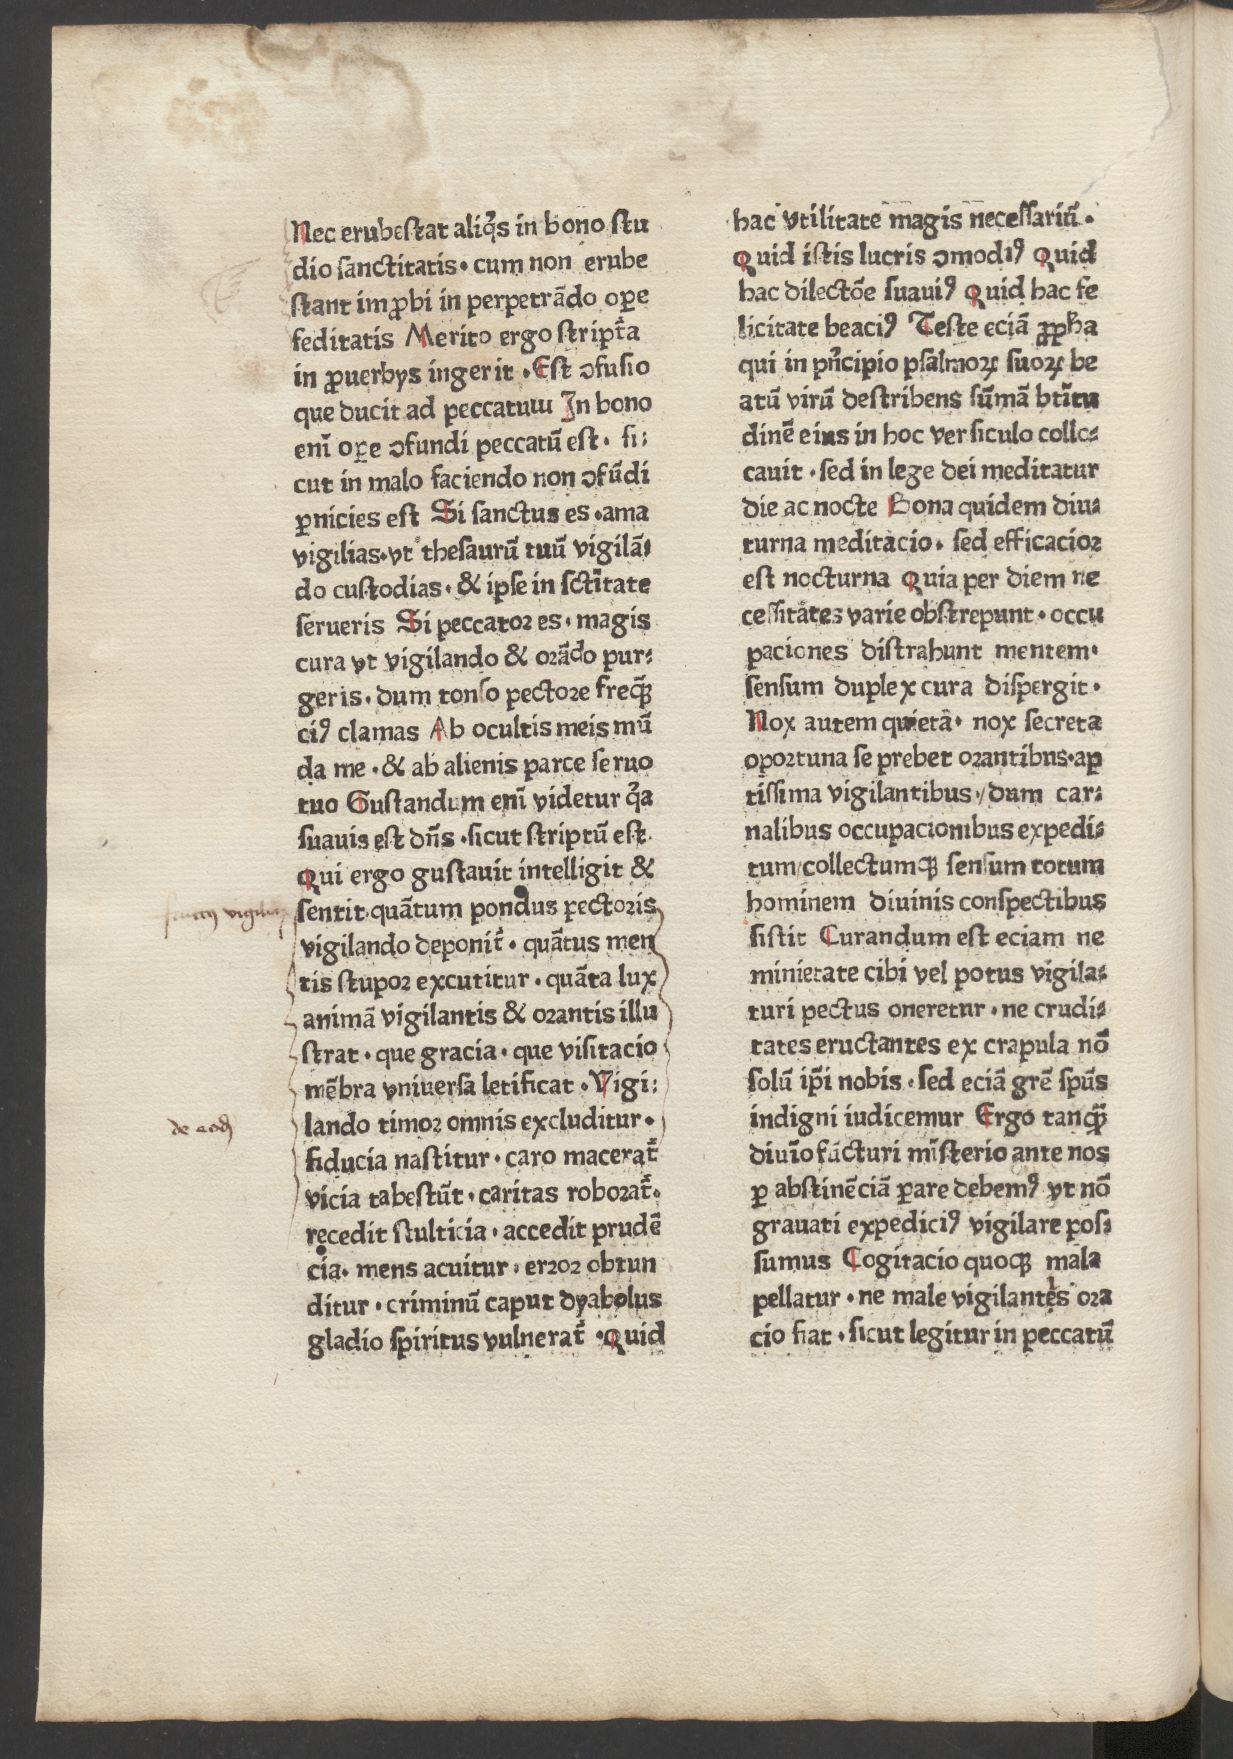 Nec erubestat aliq̄s in bono stu
dio sanctitatis · cum non erube
stant imꝓbi in perpetrādo oꝑe
feditatis Merito ergo script̄a
in ꝓuerbys ingerit · Est ꝯfusio
que ducit ad peccatum In bono
enī oꝑe ꝯfundi peccatū est · si:
cut in malo faciendo non ꝯfūdi
ꝑnicies est Si sanctus es · ama
vigilias · vt thesaurū tuū vigilā:
do custodias · & ipse in sctītate
serueris Si peccator es · magis
cura vt vigilando & orādo pur:
geris · dum tonso pectore freq̄ꝫ
ciꝰ clamas Ab ocultis meis mū
da me · & ab alienis parce seruo
tuo Gustandum enī videtur q̄a
suauis est dn̄s · sicut scriptū est
Qui ergo gustauit intelligit &
sentit quātum pondus pectoris
vigilando deponit̄ · quātus men
tis stupor excutitur · quāta lux
animā vigilantis & orantis illu
strat · que gracia · que visitacio
mēbra vniuersa letificat · Vigi:
lando timor omnis excluditur ·
fiducia nastitur · caro macerat̄
vicia tabestūt · caritas roborat̄ ·
recedit stulticia · accedit prudē
cia · mens acuitur · error obtun
ditur · criminū caput dyabolus
gladio spiritus vulnerat̄ · Quid
hac vtilitate magis necessariū ·
Quid istis lucris ꝯmodiꝰ Quid
hac dilectōe suauiꝰ Quid hac fe
licitate beaciꝰ Teste eciā ꝓpħa
qui in pn̄cipio psalmoꝝ suoꝝ be
atū virū destribens sūmā btītu
dinē eius in hoc versiculo collo:
cauit · sed in lege dei meditatur
die ac nocte Bona quidem diu:
turna meditacio · sed efficacior
est nocturna Quia per diem ne
cessitates varie obstrepunt · occu
paciones distrahunt mentem ·
sensum duplex cura dispergit ·
Nox autem quieta · nox secreta
oportuna se prebet orantibus · ap
tissima vigilantibus · / dum car:
nalibus occupacionibus expedi:
tum / collectumqꝫ sensum totum
hominem diuinis conspectibus
sistit Curandum est eciam ne
minietate cibi vel potus vigila:
turi pectus oneretur · ne crudi:
tates eructantes ex crapula nō
solū ip̄i nobis · sed eciā grē spūs
indigni iudicemur Ergo tanqꝫ̄
diuīo fūcturi mīsterio ante nos
ꝑ abstinēciā ꝑare debemꝰ vt nō
grauati expediciꝰ vigilare pos:
sumus Cogitacio quoqꝫ mala
pellatur · ne male vigilantes ora
cio fiat · sicut legitur in peccatū
vigilia
de eodē